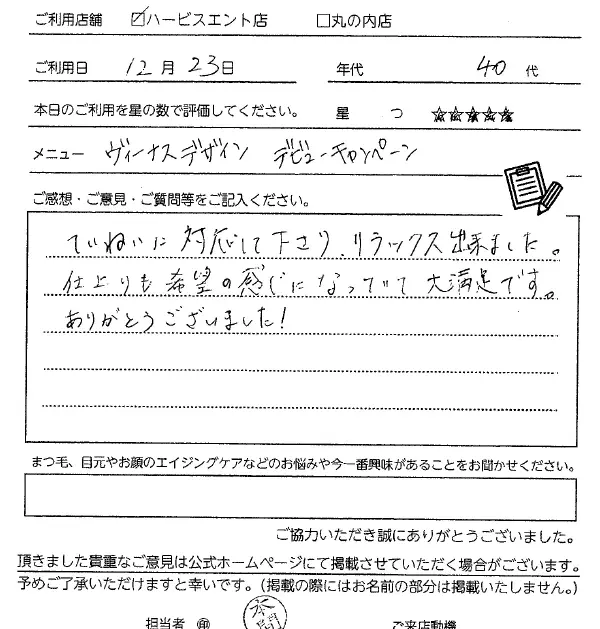 ご利用店舗 ☑ハービスエント店 □丸の内店
ご利用日 12月23日 年代 40代
本日のご利用を星の数で評価してください。 星 つ ☆☆☆☆☆
メニュー ヴィーナスデザイン デビューキャンペーン
ご感想・ご意見・ご質問等をご記入ください。
ていねいに対応して下さり、リラックス出来ました。
仕上りも希望の感じになっていて大満足です。
ありがとうございました!
まつ毛、目元やお顔のエイジングケアなどのお悩みや今一番興味があることをお聞かせください。
ご協力いただき誠にありがとうございました。
頂きました貴重なご意見は公式ホームページにて掲載させていただく場合がございます。
予めご了承いただけますと幸いです。(掲載の際にはお名前の部分は掲載いたしません。)
担当者 ㊞ 本間 ご来店動機